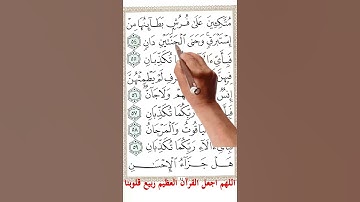 مُتَّكِـِٔينَ عَلَىٰ فُرُشٍۭ بَطَآئِنُهَا مِنْ
إِسْتَبْرَقٍ وَجَنَى ٱلْجَنَّتَيْنِ دَانٍ ٥٤
فَبِأَيِّ ءَالَآ تُكَذِّبَانِ ٥٥
لَمْ يَطْمِثْهُنَّ
إِنسٌ وَلَا جَآنٌّ ٥٦
رَبِّكُمَا تُكَذِّبَانِ ٥٧
ٱلْيَاقُوتُ وَٱلْمَرْجَانُ ٥٨
فَبِأَيِّ ءَالَآءِ رَبِّكُمَا تُكَذِّبَانِ ٥٩
هَلْ جَزَآءُ ٱلْإِحْسَـٰنِ
اللهم اجعل القرآن العظيم ربيع قلوبنا